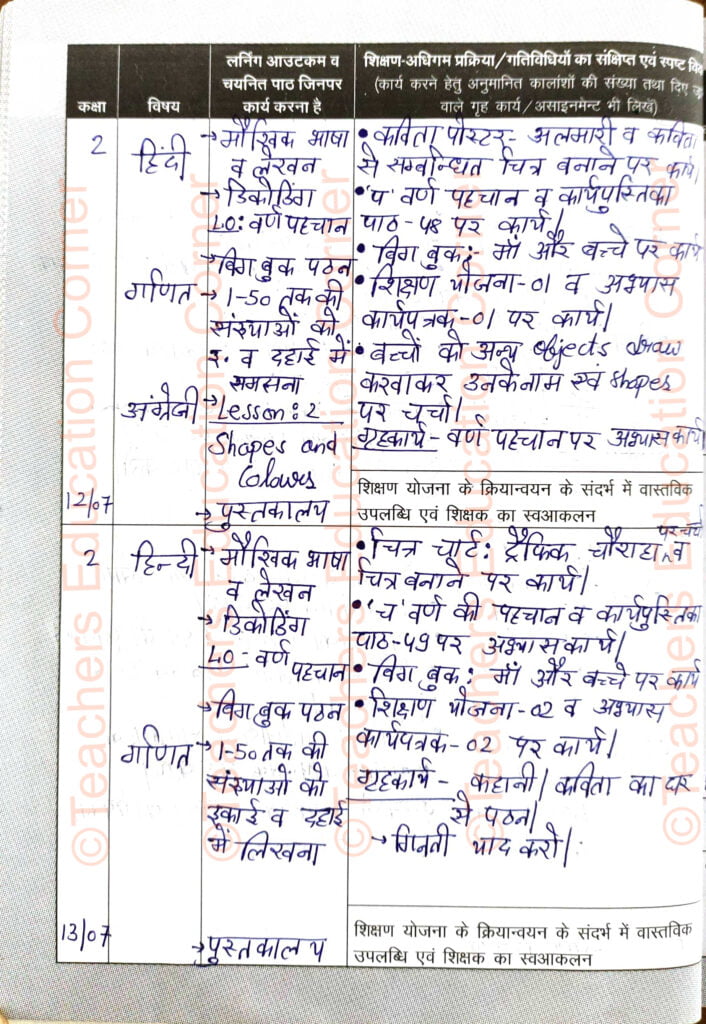 कक्षा
विषय
लर्निंग आउटकम व
चयनित पाठ जिनपर
कार्य करना है
शिक्षण-अधिगम प्रक्रिया/गतिविधियों का संक्षिप्त एवं स्पष्ट
(कार्य करने हेतु अनुमानित कालांशों की संख्या तथा दिए
वाले गृह कार्य/असाइनमेन्ट भी लिखें)
2
हिंदी
→ मौखिक भाषा
व लेखन
→ डिकोडिंग
LO: वर्ण पहचान
→ बिग बुक पठन
गणित
→ 1-50 तक की
संख्याओं को
इ. व दहाई में
समझना
अंग्रेजी
→ Lesson: 2
Shapes and
Colours
→ पुस्तकालय
12/07
• कविता पोस्टर- अलमारी व कविता
से सम्बन्धित चित्र बनाने पर कार्य।
• 'प' वर्ण पहचान व कार्यपुस्तिका
पाठ-48 पर कार्य।
• बिग बुक:- माँ और बच्चे पर कार्य
• शिक्षण योजना-01 व अभ्यास
कार्यपत्रक-01 पर कार्य।
• बच्चों को अन्य objects draw
करवाकर उनके नाम एवं shapes
पर चर्चा।
गृहकार्य- वर्ण पहचान पर अभ्यास कार्य।
शिक्षण योजना के क्रियान्वयन के संदर्भ में वास्तविक
उपलब्धि एवं शिक्षक का स्वआकलन
2
हिन्दी
→ मौखिक भाषा
व लेखन
→ डिकोडिंग
LO- वर्ण
पहचान
→ बिग बुक पठन
गणित
→ 1-50 तक की
संख्याओं को
इकाई व दहाई
में लिखना
→ पुस्तकालय
13/07
• चित्र चार्ट: ट्रैफिक चौराहा पर चर्चा व
चित्र बनाने पर कार्य।
• 'च' वर्ण की पहचान व कार्यपुस्तिका
पाठ-49 पर अभ्यास कार्य।
• बिग बुक: माँ और बच्चे पर कार्य
• शिक्षण योजना-02 व अभ्यास
कार्यपत्रक-02 पर कार्य।
गृहकार्य- कहानी/कविता का घर
से पठन।
→ गिनती याद करो।
शिक्षण योजना के क्रियान्वयन के संदर्भ में वास्तविक
उपलब्धि एवं शिक्षक का स्वआकलन
©Teachers Education Corner
©Teachers Education Corner
©Teachers Education Corner
©Teachers Education Corner